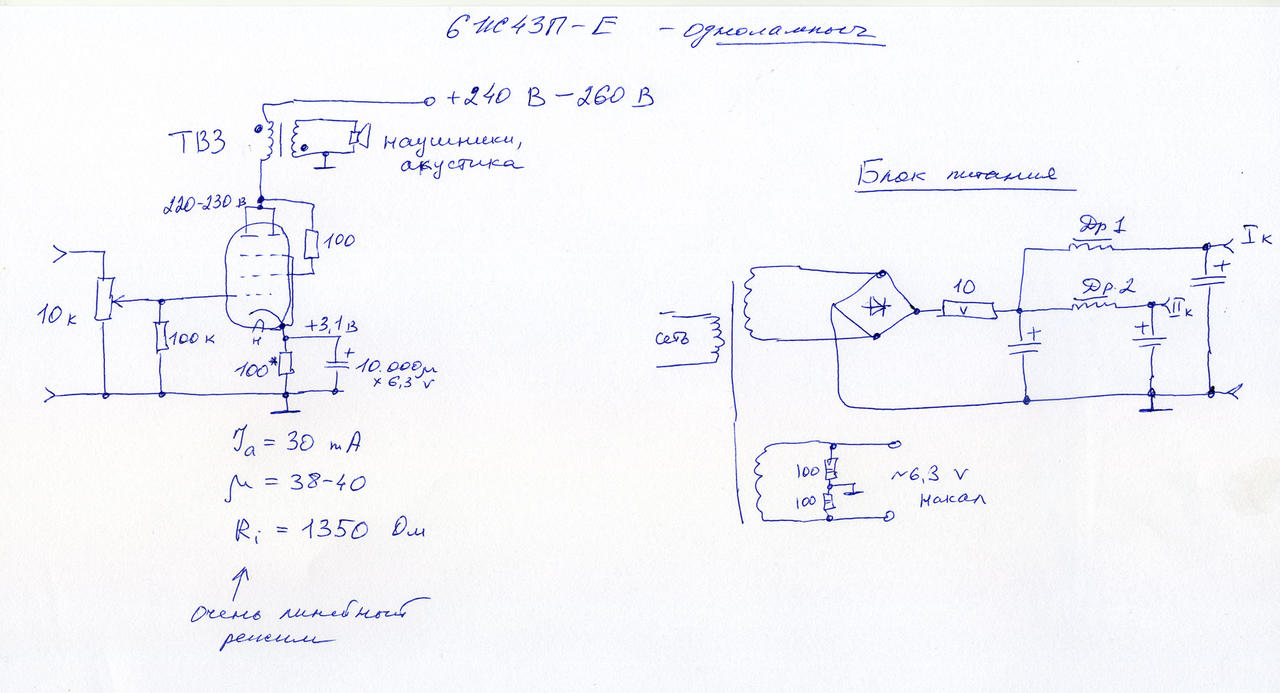 6Ж43П-Е - одноламповый
+240 В - 260 В
ТВЗ
наушники,
акустика
220-230 в
100
10к
100к
н
+3,1 в
100*
+
10.000 μ
× 6,3 v
Ja = 30 mA
μ = 38-40
Ri = 1350 Ом
Очень линейный
режим
Блок питания
Др 1
I к
+
10
Др. 2
II к
v
сеть
+
+
100
100
~6,3 v
накал